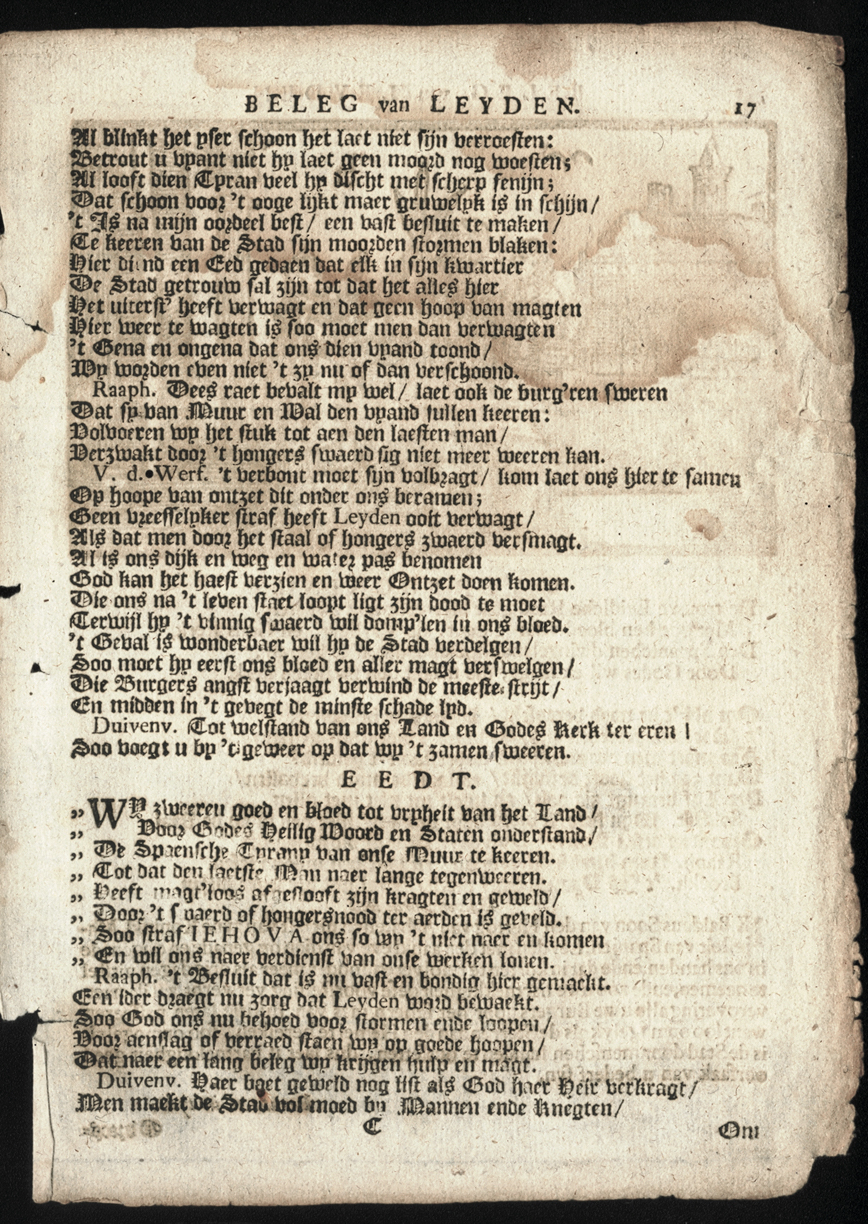 BELEG van LEYDEN. 17
Al blinkt het yser schoon het laet niet sijn verroesten:
Betrout u vyant niet hy laet geen moord nog woesten;
Al looft dien Tyran veel hy discht met scherp fenijn;
Dat schoon voor 't ooge lijkt maer gruwelyk is in schijn/
't Is na mijn oordeel best/ een vast besluit te maken/
Te keeren van de Stad sijn moorden stormen blaken:
Hier diend een Eed gedaen dat elk in sijn kwartier
De Stad getrouw sal zijn tot dat het alles hier
Het uiterst' heeft verwagt en dat geen hoop van magten
Hier weer te wagten is soo moet men dan verwagten
't Gena en ongena dat ons dien vyand toond/
Wy worden even niet 't zy nu of dan verschoond.
Raaph. Dees raet bevalt my wel/ laet ook de burg'ren sweren
Dat sy van Muur en Wal den vyand sullen keeren:
Volvoeren wy het stuk tot aen den laesten man/
Verzwakt door 't hongers swaerd sig niet meer weeren kan.
V. d. Werf. 't verbont moet sijn volbragt/ kom laet ons hier te samen
Op hoope van ontzet dit onder ons beramen;
Geen vreesselyker straf heeft Leyden ooit verwagt/
Als dat men door het staal of hongers zwaerd versmagt.
Al is ons dijk en weg en water pas benomen
God kan het haest verzien en weer Ontzet doen komen.
Die ons na 't leven staet loopt ligt zijn dood te moet
Terwijl hy 't vinnig swaerd wil domp'len in ons bloed.
't Geval is wonderbaer wil hy de Stad verdelgen/
Soo moet hy eerst ons bloed en aller magt verswelgen/
Die Burgers angst verjaagt verwind de meeste strijt/
En midden in 't gevegt de minste schade lyd.
Duivenv. Tot welstand van ons Land en Godes Kerk ter eren!
Soo voegt u by 't geweer op dat wy 't zamen sweeren.
EEDT.
„ WY zweeren goed en bloed tot vryheit van het Land/
„ Door Godes Heilig Woord en Staten onderstand/
„ De Spaensche Tyrany van onse Muur te keeren.
„ Tot dat den laetste Man naer lange tegenweeren.
„ Heeft magt'loos afgeslooft zijn kragten en geweld/
„ Door 't swaerd of hongersnood ter aerden is geveld.
„ Soo straf IEHOVA ons so wy 't niet naer en komen
„ En wil ons naer verdienst van onse werken loonen.
Raaph. 't Besluit dat is nu vast en bondig hier gemaekt.
Een ider draegt nu zorg dat Leyden word bewaekt.
Soo God ons nu behoed voor stormen ende loopen/
Voor aenslag of verraed staen wy op goede hoopen/
Dat naer een lang beleg wy krijgen hulp en magt.
Duivenv. Haer baet geweld nog list als God haer Heir verkragt/
Men maekt de Stad vol moed by Mannen ende Knegten/
C Om